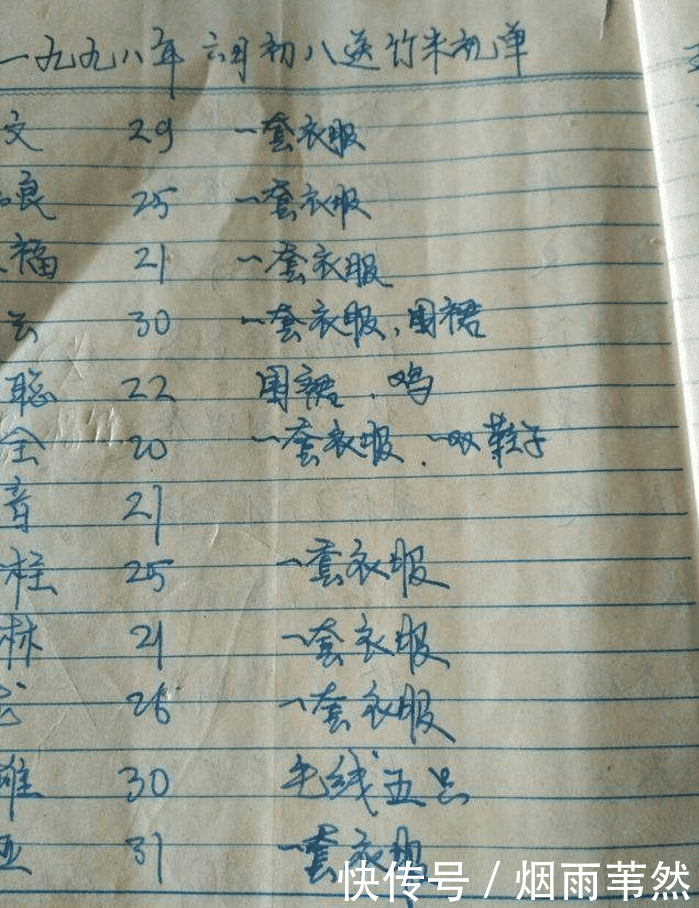 一九九八年 六月初八送竹米礼单
文 29 一套衣服
良 25 一套衣服
福 21 一套衣服
云 30 一套衣服、围裙
聪 22 围裙、鸡
全 20 一套衣服、一双鞋子
音 21
柱 25 一套衣服
林 21 一套衣服
26 一套衣服
雄 30 毛线五只
亚 31 一套衣服
快传号 / 烟雨苇然